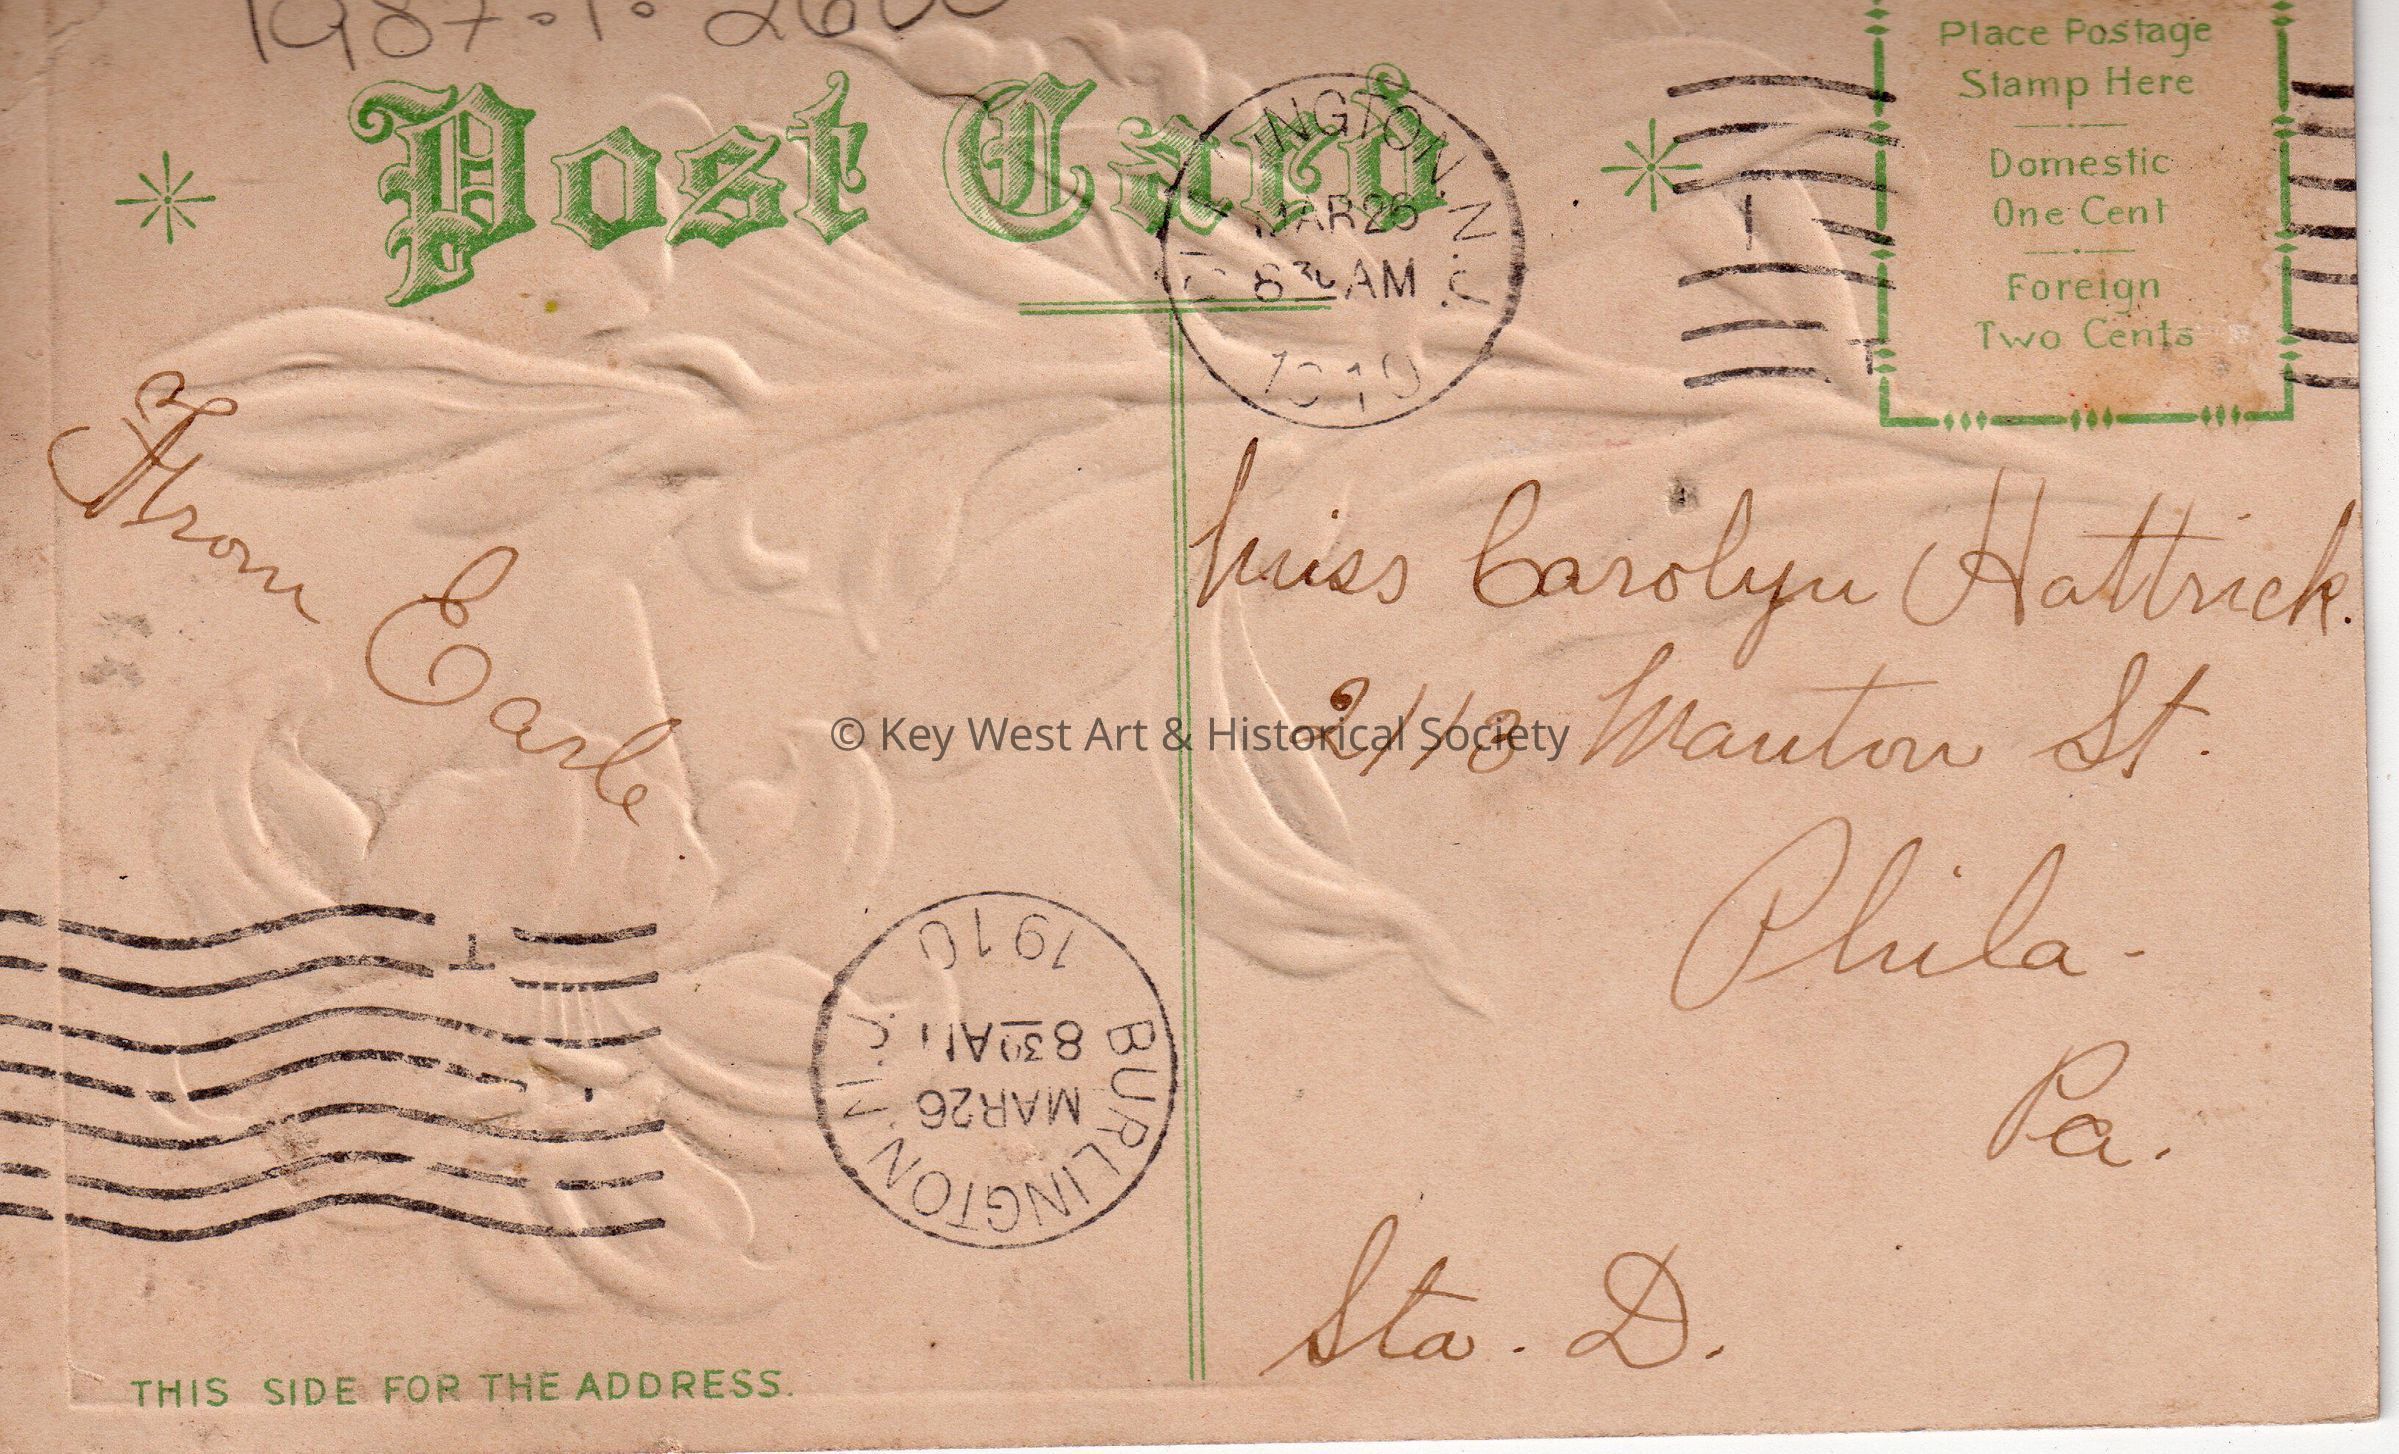 1987.1.26
Post Card
Place Postage
Stamp Here
Domestic
One Cent
Foreign
Two Cents
INGTON. N.C.
MAR 26
8 30 AM
1910
T
From
Earle
Miss Carolyn Hattrick.
2118 Manton St.
Phila-
Pa.
Sta. D.
© Key West Art & Historical Society
BURLINGTON N.C.
MAR 26
8 30 AM
1910
T
THIS SIDE FOR THE ADDRESS.